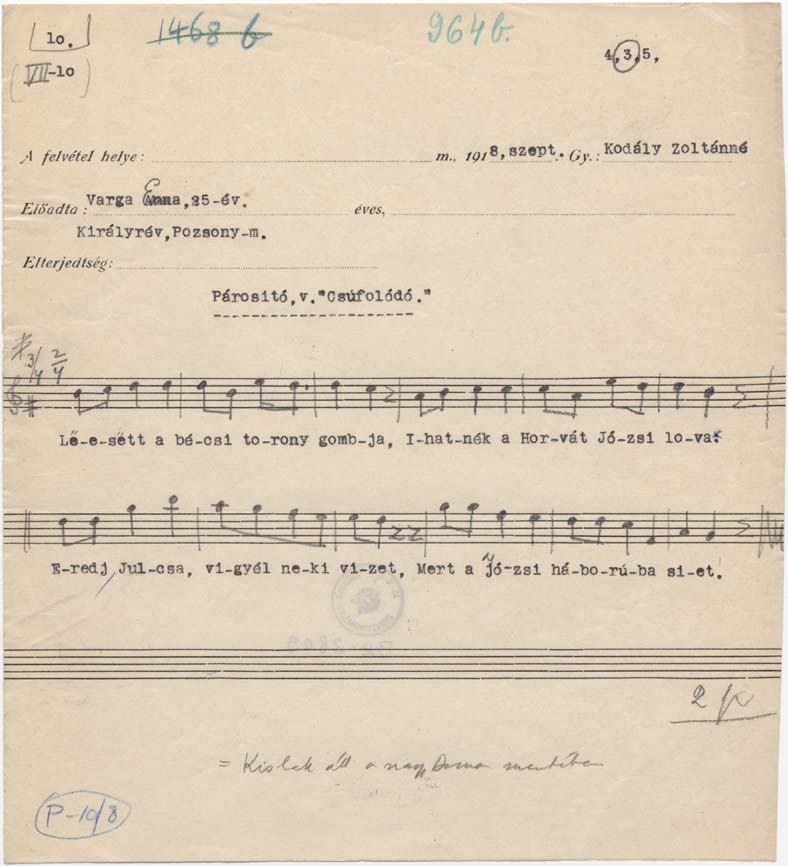 10. 1468 b 964b.
VII-10 4,3,5,
A felvétel helye: m., 1918,szept. Gy.: Kodály Zoltánné
Előadta: Varga Emma,25-év. éves,
Királyrév,Pozsony-m.
Elterjedtség:
Párositó,v."Csúfolódó."
3/4 2/4
Lë-e-sëtt a bé-csi to-rony gomb-ja, I-hat-nék a Hor-vát Jó-zsi lo-va:
E-redj Jul-csa, vi-gyél ne-ki vi-zet, Mert a Jó-zsi há-bo-rú-ba si-et.
2
= Kislak áll a nagy Duna mentében
P-10/8